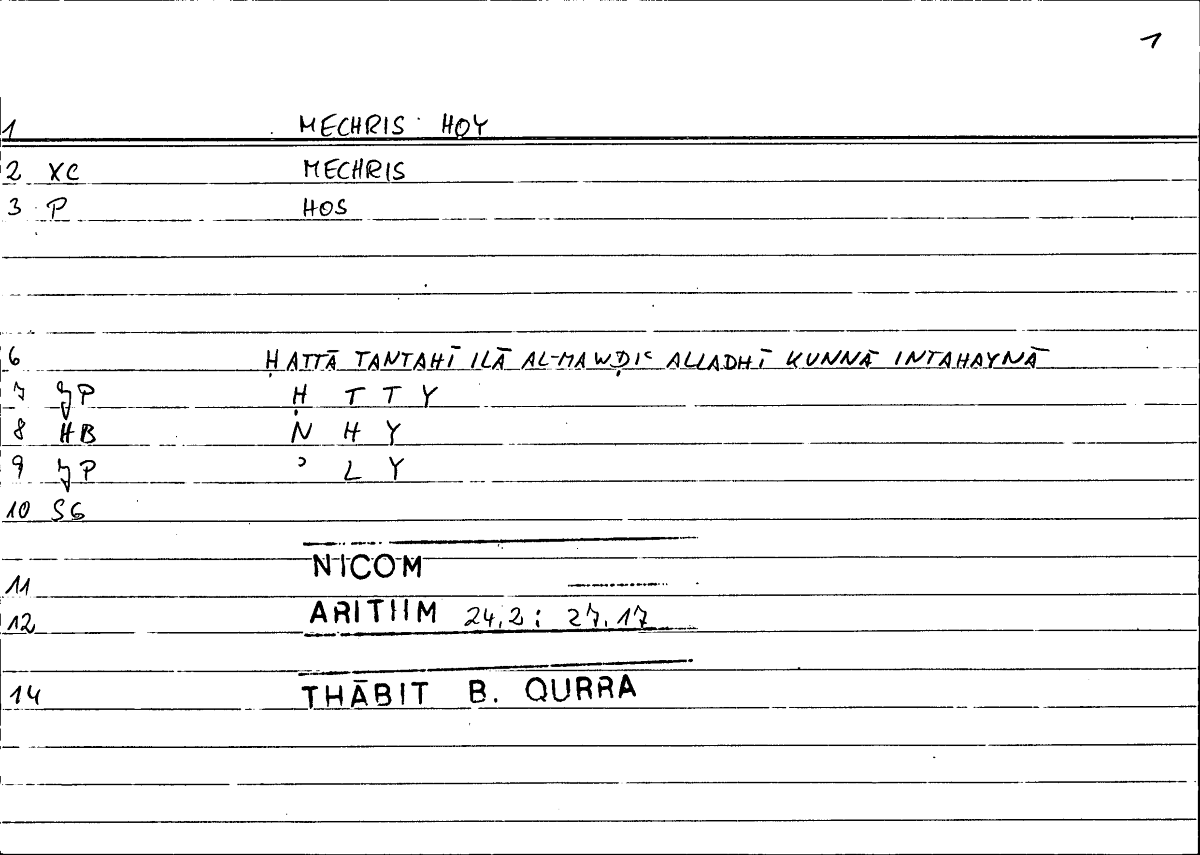 1
1 MECHRIS HOY
2 XC MECHRIS
3 P HOS
6 ḤATTĀ TANTAHĪ ILĀ AL-MAWḌIʿ ALLADHĪ KUNNĀ INTAHAYNĀ
7 P Ḥ T T Y
8 HB N H Y
9 P ʾ L Y
10 SG
11 NICOM
12 ARITIIM 24,2 ; 27,17
14 THĀBIT B. QURRA